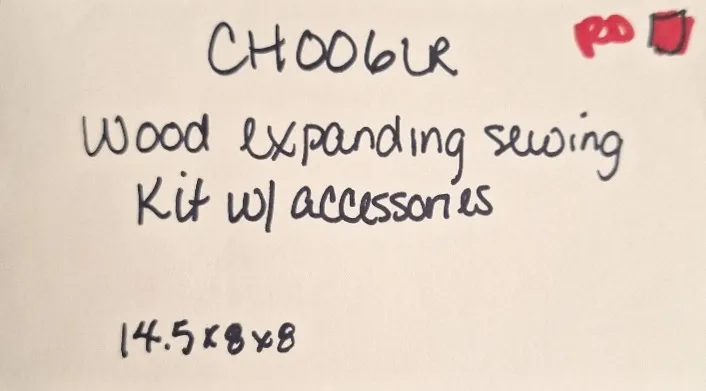 CH006LR
Wood expanding sewing
Kit w/ accessories
14.5x8x8